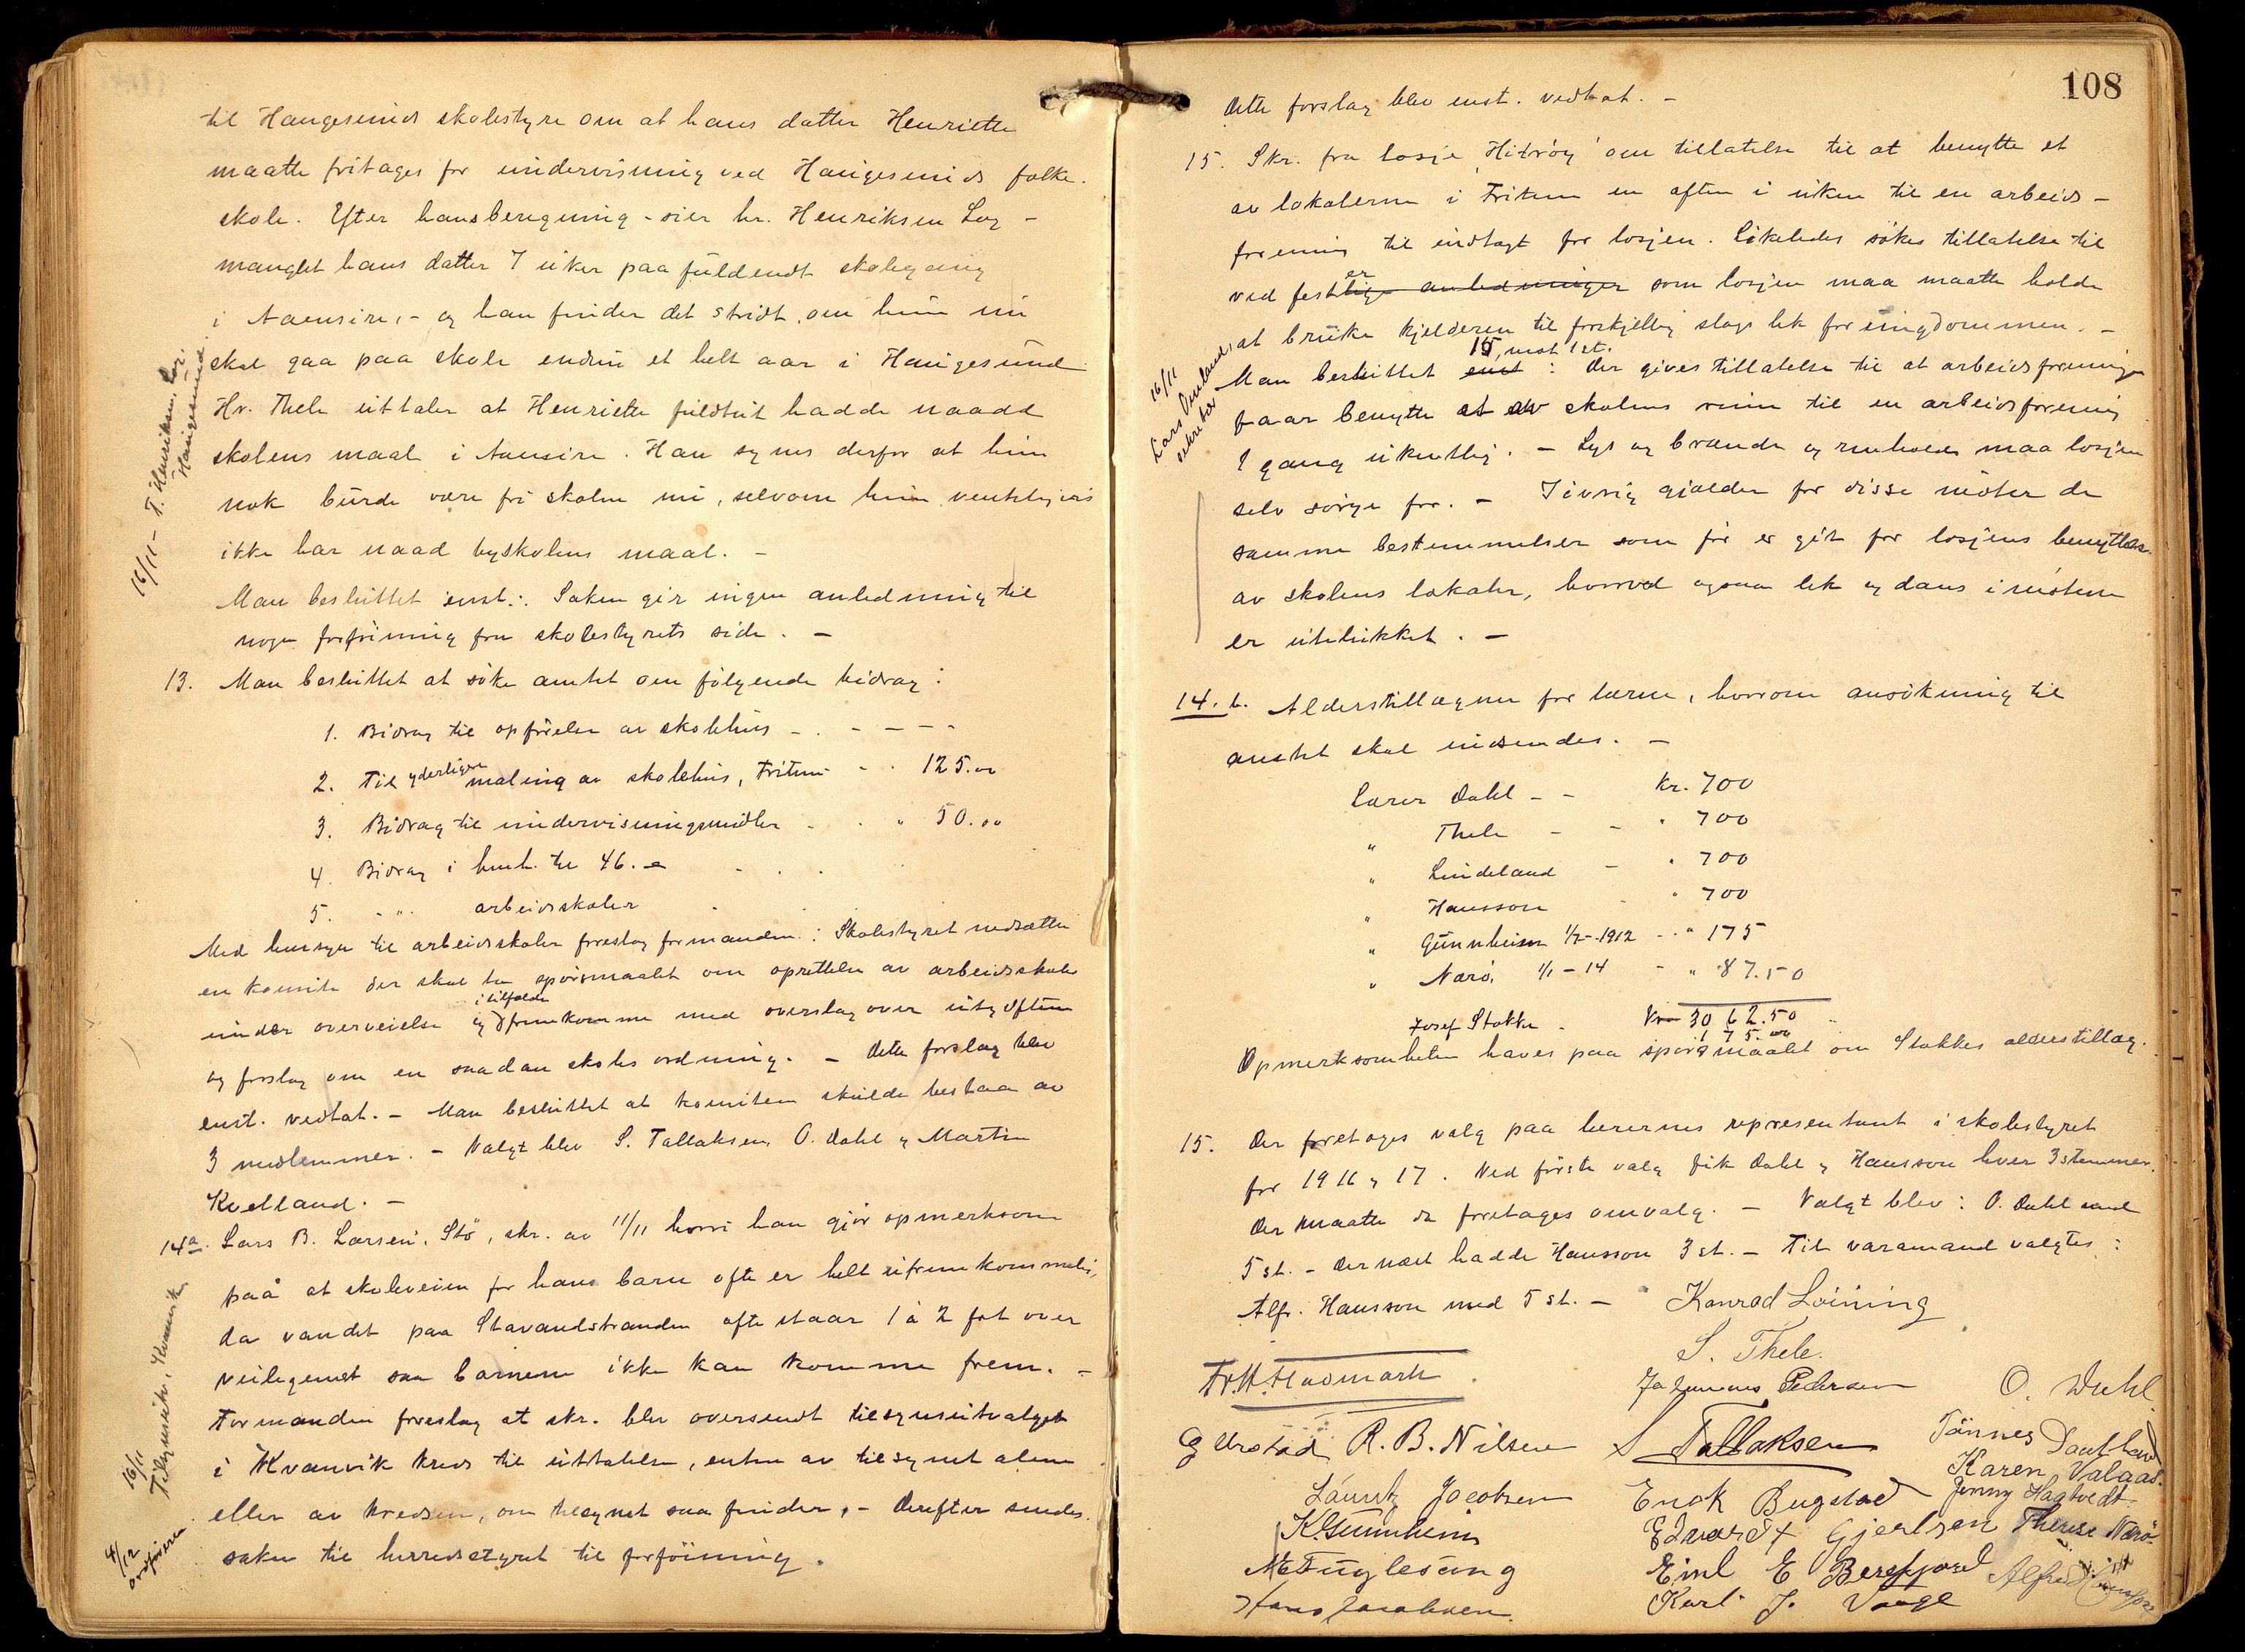 til Haugesunds skolestyre om at hans datter Henriette
maatte fritages for undervisning ved Haugesunds folke-
skole. Efter hans beregning - sier hr. Henriksen Log -
manglet hans datter 7 uker paa fuldendt skolegang
i Aaensire, - og han finder det stridt, om hun nu
skal gaa paa skole endnu et helt aar i Haugesund
Hr. Thele uttaler at Henriette fuldtut hadde naadd
skolens maal i Aaensire. Han synes derfor at hun
nok burde være fri skolen nu, selvom hun venteligvis
ikke har naad byskolens maal. -
Man besluttet enst.: Saken gir ingen anledning til
nogen forføining fra skolestyrets side. -
16/11 - T. Henriksen Log. Haugesund
13. Man besluttet at søke amtet om følgende bidrag:
1. Bidrag til opførelse av skolehus - - - - -
2. Til yderligere maling av skolehus, Fritun - - 125.00
3. Bidrag til undervisningsmidler - - " 50.00
4. Bidrag i henh. til 46. e
5. - " - arbeidsskoler
Med hensyn til arbeidsskoler foreslog formanden: Skolestyret nedsætter
en komite der skal ta spørsmaalet om oprettelse av arbeidsskole
under overveielse og i tilfælde fremkomme med overslag over utgiftene
og forslag om en saadan skoles ordning. - Dette forslag blev
enst. vedtat. - Man besluttet at komiteen skulde bestaa av
3 medlemmer. - Valgt blev S. Tallaksen, O. Dahl og Martin
Kvelland. -
14a. Lars B. Larsen, Stø, skr. av 11/11 hvori han gjør opmerksom
paa at skoleveien for hans barn ofte er helt ufremkommelig,
da vandet paa Stavandstranden ofte staar 1 à 2 fot over
veilegemet saa barnene ikke kan komme frem. -
Formanden foreslog at skr. blev oversendt tilsynsutvalget
i Kvanvik kreds til uttalelse, enten av tilsynet alene
eller av kredsen, om tilsynet saa finder, - Derefter sendes
saken til herredsstyret til forføining.
16/11 Tilsynsutv. Kvanvik
4/12 ordføreren
108
Dette forslag blev enst. vedtat. -
15. Skr. fra losje "Hitrøy" om tillatelse til at benytte et
av lokalerne i Fritun en aften i uken til en arbeids-
forening til indtægt for losjen. Likeledes søkes tillatelse til
ved fester som losjen maa maatte holde
at bruke kjelderen til forskjellig slags lek for ungdommen. -
Man besluttet enst 15, mot 1 st.: Der gives tillatelse til at arbeidsforeningen
faar benytte et av skolens rum til en arbeidsforening
1 gang ukentlig. - Lys og brænde og renhold maa losjen
selv sørge for. - Iøvrig gjælder for disse møter de
samme bestemmelser som før er git for losjens benyttelse
av skolens lokaler, hvorved ogsaa lek og dans i møtene
er utelukket. -
16/11 Lars Omland, sekretær
14. b. Alderstillægene for lærere, hvorom ansøkning til
amtet skal indsendes. -
Lærer Dahl - - Kr. 700
" Thele - - " 700
" Lindeland - " 700
" Hansson - " 700
" Gunnheim 1/7-1912 - " 175
" Narø, 1/1 - 14 - " 87.50
Kr 3062.50
Josef Stakke - 175.00
Opmerksomheten haves paa spørsmaalet om Stakkes alderstillæg.
15. Der foretoges valg paa lærernes representant i skolestyret
for 1916 og 17. Ved første valg fik Dahl og Hansson hver 3 stemmer.
Der maatte da foretages omvalg. - Valgt blev: O. Dahl med
5 st. - Dernæst hadde Hansson 3 st. - Til varamand valgtes:
Alfr. Hansson med 5 st. - Konrad Løining
S. Thele.
Fr. M. Hadmark Johannes Pedersen O. Dahl.
R. B. Nilsen S Tallaksen Tønnes
Karen Valaas.
Lauritz Jacobsen Enok Bugstad Jenny Hagtvedt
K Gunnheim Edvardt Gjertsen Therese Narø
M Fuglesang Emil E Berefjord Alfred Hansson
Hans Jacobsen. Karl J. Vaage